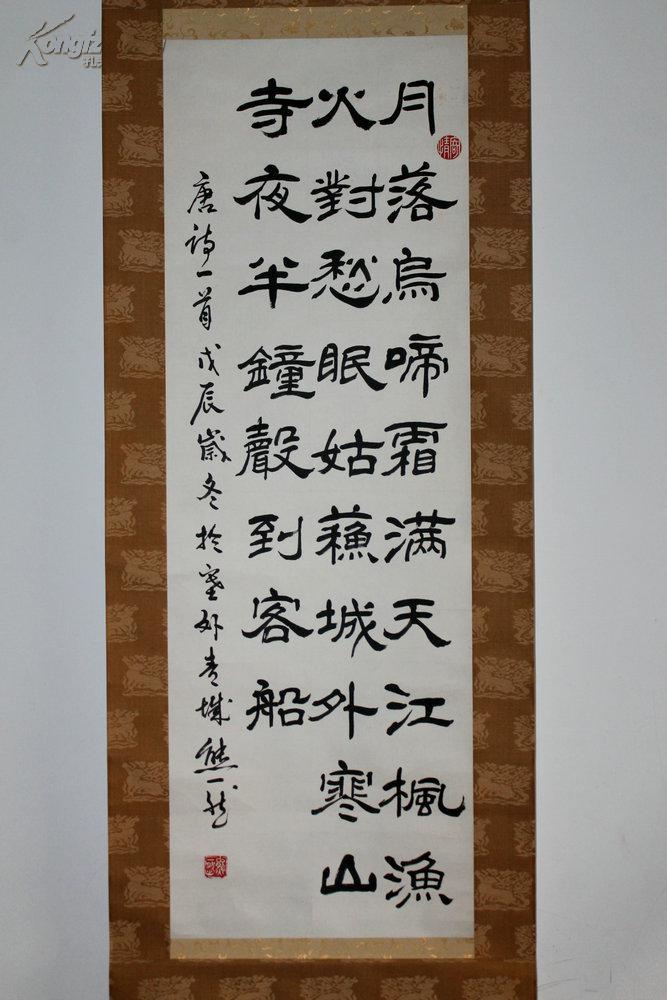 月落烏啼霜满天江楓漁
火對愁眠姑蘓城外寒山
寺夜半鐘聲到客船
唐诗一首戊辰歲冬於塞外青城熊一然
Kongfz